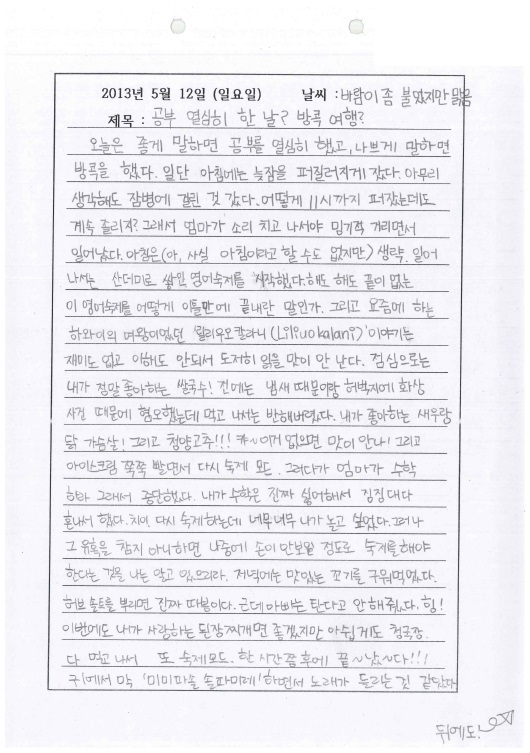 2013년 5월 12일 (일요일) 날씨 : 바람이 좀 불었지만 맑음
제목 : 공부 열심히 한 날? 방콕 여행?
오늘은 좋게 말하면 공부를 열심히 했고, 나쁘게 말하면
방콕을 했다. 일단 아침에는 늦잠을 퍼질러지게 잤다. 아무리
생각해도 잠병에 걸린 것 같다. 어떻게 11시까지 퍼잤는데도
계속 졸리지? 그래서 엄마가 소리 치고 나서야 밍기적 거리면서
일어났다. 아침은(아, 사실 아침이라고 할 수도 없지만) 생략. 일어
나서는 산더미로 쌓인 영어숙제를 시작했다. 해도 해도 끝이 없는
이 영어숙제를 어떻게 이틀만에 끝내란 말인가. 그리고 요즘에 하는
하와이의 여왕이었던 '릴리우오칼라니(Liliuokalani)'이야기는
재미도 없고 이해도 안되서 도저히 읽을 맛이 안 난다. 점심으로는
내가 정말 좋아하는 쌀국수! 전에는 냄새 때문이랑 허벅지에 화상
사건 때문에 혐오했는데 먹고 나서는 반해버렸다. 내가 좋아하는 새우랑
닭 가슴살! 그리고 청양고추!!! 캬~이거 없으면 맛이 안나! 그리고
아이스크림 쭉쭉 빨면서 다시 숙제 모드. 그러다가 엄마가 수학
하라 그래서 중단했다. 내가 수학은 진짜 싫어해서 징징대다
혼나서 했다. 치이. 다시 숙제하는데 너무너무 내가 놀고 싶었다. 그러나
그 유혹을 참지 아니하면 나중에 손이 안보일 정도로 숙제를 해야
한다는 것을 나는 알고 있으리라. 저녁에는 맛있는 꼬기를 구워먹었다.
허브 솔트를 뿌리면 진짜 따봉이다. 근데 아빠는 탄다고 안해줬다, 힝!
이번에도 내가 사랑하는 된장찌개면 좋겠지만 아쉽게도 청국장.
다 먹고 나서 또 숙제모드. 한 시간쯤 후에 끝~났~다!!!
귀에서 막 '미미파솔 솔파미레'하면서 노래가 들리는 것 같았다
뒤에도!